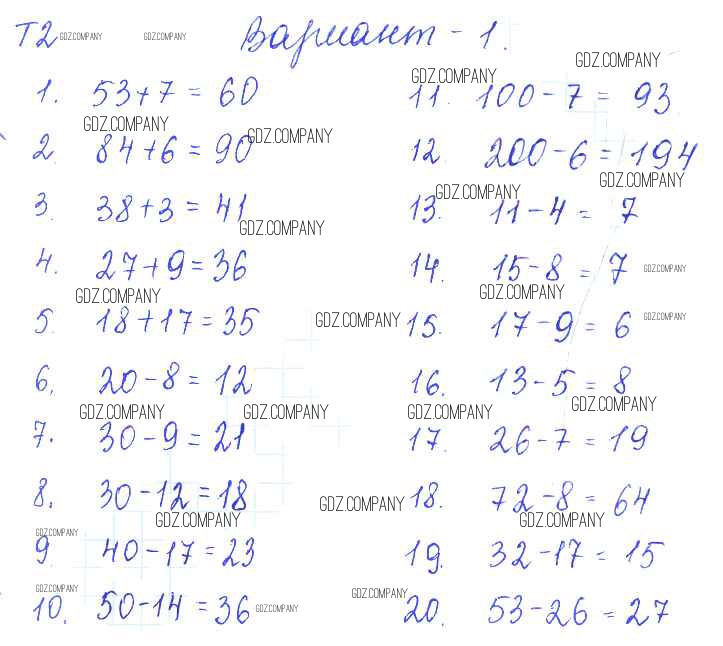 Т2 Вариант - 1.
GDZ.COMPANY GDZ.COMPANY GDZ.COMPANY
1. 53+7 = 60
GDZ.COMPANY
11. 100-7 = 93
GDZ.COMPANY GDZ.COMPANY
2. 84+6 = 90
12 200-6 = 194
GDZ.COMPANY GDZ.COMPANY
3. 38+3 = 41
13. 11-4 = 7
GDZ.COMPANY
4. 27+9 = 36
14. 15-8 = 7
GDZ.COMPANY
GDZ.COMPANY GDZ.COMPANY
5. 18+17 = 35
GDZ.COMPANY
15. 17-9 = 6
GDZ.COMPANY
6. 20-8 = 12
16. 13-5 = 8
GDZ.COMPANY
GDZ.COMPANY GDZ.COMPANY GDZ.COMPANY
7. 30-9 = 21
17. 26-7 = 19
8. 30-12 = 18
GDZ.COMPANY
18. 72-8 = 64
GDZ.COMPANY GDZ.COMPANY
GDZ.COMPANY
9. 40-17 = 23
19. 32-17 = 15
GDZ.COMPANY GDZ.COMPANY
10. 50-14 = 36
GDZ.COMPANY
20. 53-26 = 27